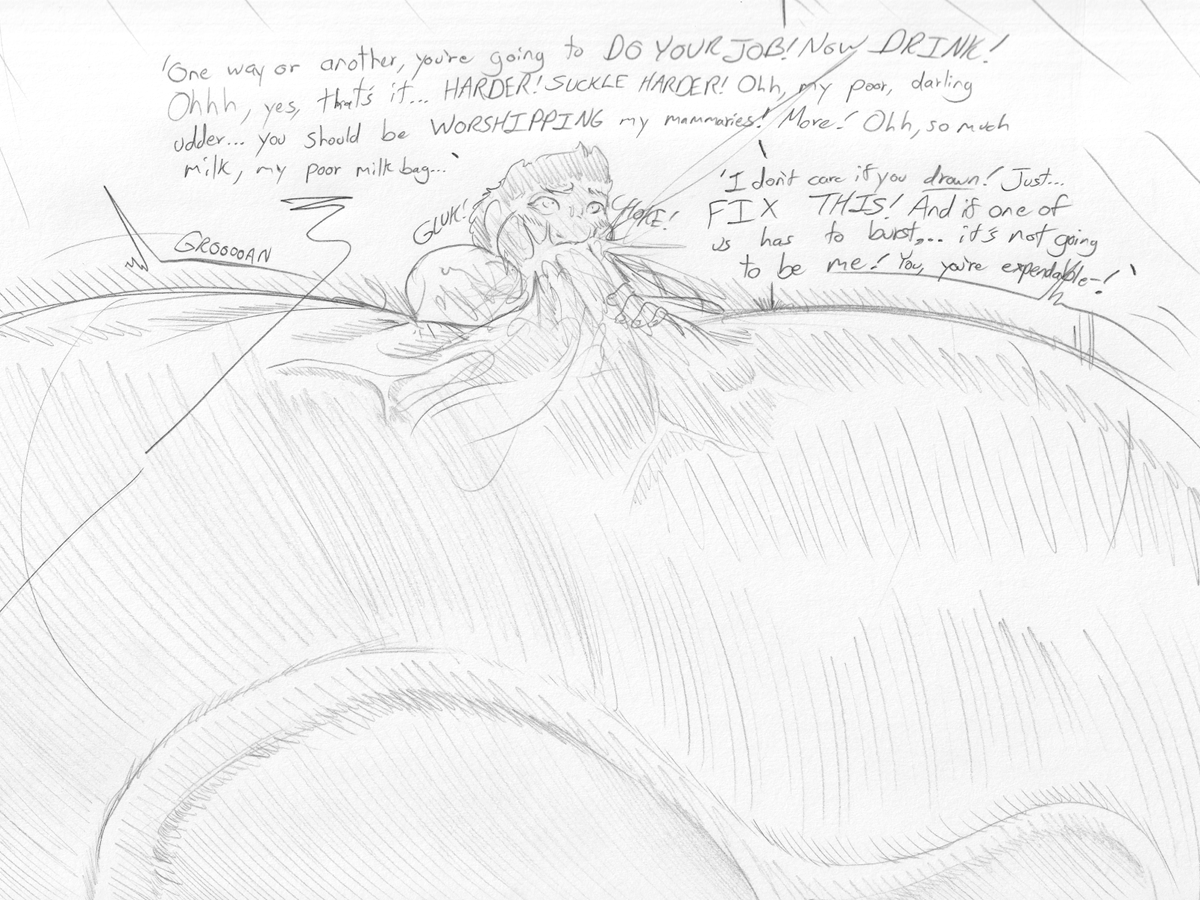 'One way or another, you're going to DO YOUR JOB! Now DRINK!
Ohhh, yes, that's it... HARDER! SUCKLE HARDER! Ohh, my poor, darling
udder... you should be WORSHIPPING my mammaries! More! Ohh, so much
milk, my poor milk bag...'
'I don't care if you drown! Just...
FIX THIS! And if one of
us has to burst,... it's not going
to be me! You, you're expendable-!'
GLUK!
CHOKE!
GROOOOAN